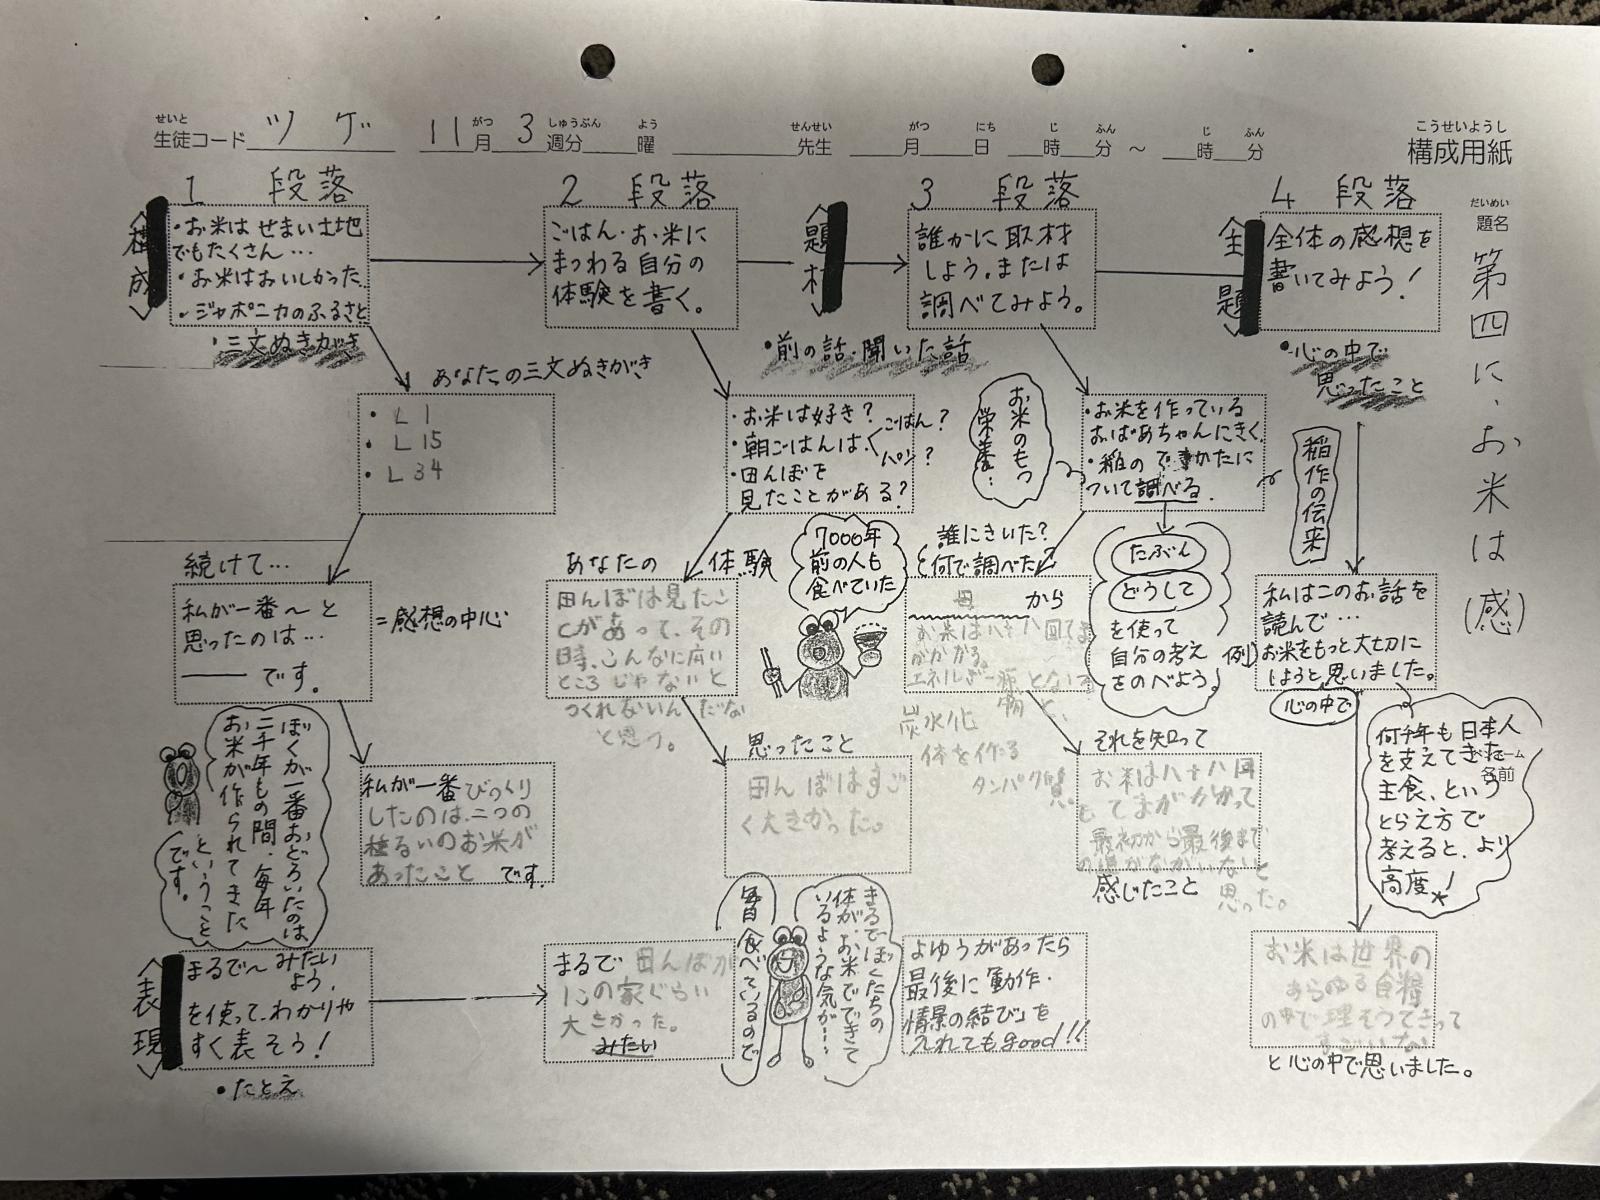 せいと
生徒コード ツゲ 11月 3週分 曜 先生 月 日 時 分 ～ 時 分
がつ しゅうぶん よう せんせい がつ にち じ ふん じ ふん
こうせいようし
構成用紙
だいめい
題名
第四に、お米は(感)
1 段落
<構成>
・お米は せまい土地
でもたくさん…
・お米はおいしかった
・ジャポニカのふるさと
・三文ぬきがき
あなたの三文ぬきがき
・L1
・L15
・L34
続けて…
私が一番～と
思ったのは…
―― です。
=感想の中心
ぼくが一番おどろいたのは
二千年もの間、毎年
お米が作られてきた
ということ
です。
私が一番びっくり
したのは、二つの
種るいのお米が
あったこと です。
<表現>
まるで～みたい
よう、
を使って、わかりや
すく表そう！
・たとえ
2 段落
ごはん・お米に
まつわる自分の
体験を書く。
・お米は好き？
・朝ごはんは、
ごはん？
パン？
・田んぼを
見たことがある？
あなたの 体験
田んぼは見たこ
とがあって、その
時、こんなに広い
ところじゃないと
つくれないんだな
と思う。
7000年
前の人も
食べていた
思ったこと
田んぼはすご
く大きかった。
まるで 田んぼが
1この家ぐらい
大きかった。
みたい
毎日食べているので
まるでぼくたちの
体が、お米でできて
いるような気が…
<題材>
3 段落
誰かに取材
しよう。または
調べてみよう。
・前の話・聞いた話
お米のもつ
栄養…
・お米を作っている
おばあちゃんにきく
・稲のできかたに
ついて調べる。
誰にきいた？
何で調べた？
母 から
お米は八十八回てま
がかかる。
エネルギー源となる
炭水化物と、
体を作る
タンパク質
たぶん
どうして
を使って
自分の考え
をのべよう。
それを知って
お米は八十八回
もてまがかかって
最初から最後まで
感じたこと
思った。
よゆうがあったら
最後に動作・
情景の結び」を
入れてもgood!!
<主題>
4 段落
全体の感想を
書いてみよう！
・心の中で
思ったこと
稲作の伝来
例)
私はこのお話を
読んで…
お米をもっと大切に
しようと思いました。
心の中で
何千年も日本人
を支えてきた
主食、という
とらえ方で
考えると、より
高度！
ペンネーム
名前
お米は世界の
あらゆる食糧
の中で理そうてきって
すごいな
と心の中で思いました。